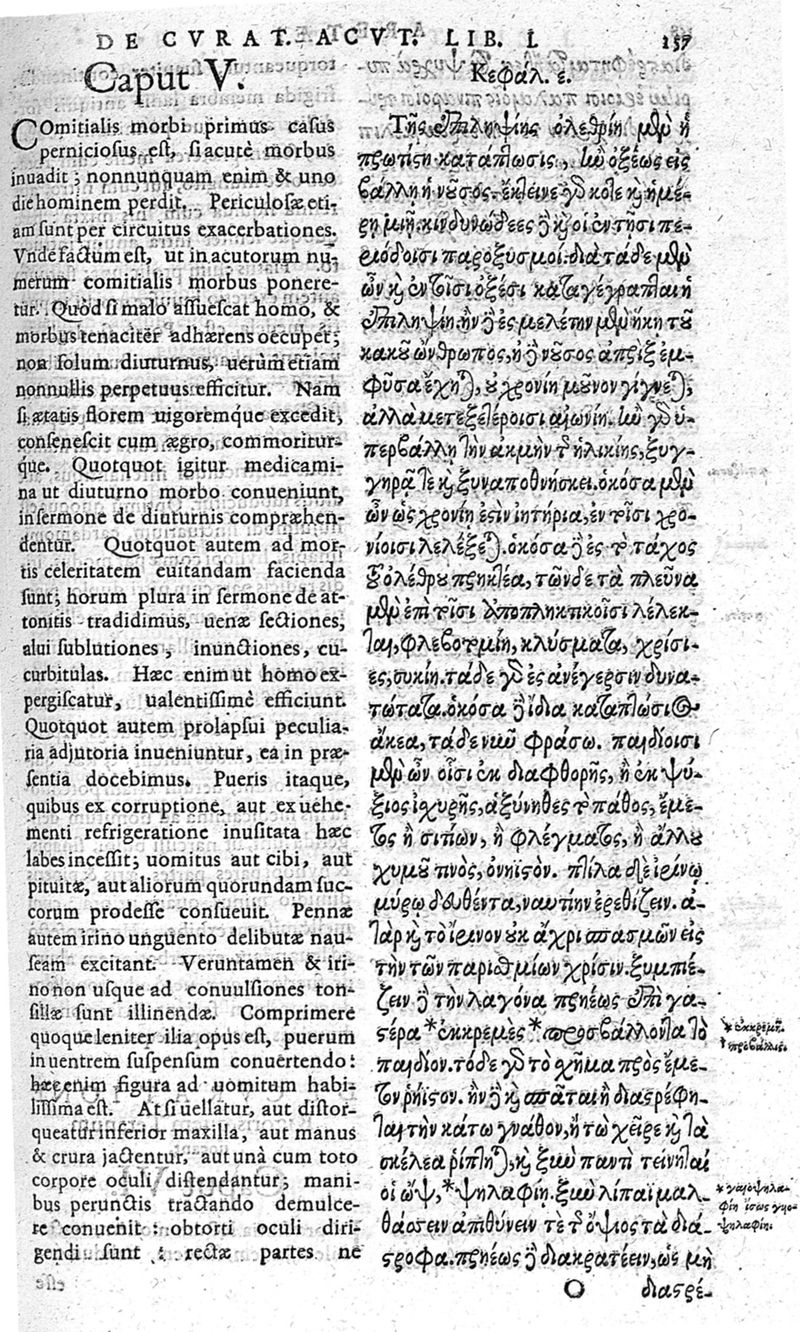 DE CVRAT. ACVT. LIB. I. 157
Caput V.
COmitialis morbi primus casus
perniciosus est, si acutè morbus
inuadit; nonnunquam enim & uno
die hominem perdit. Periculosæ eti-
am sunt per circuitus exacerbationes.
Vnde factum est, ut in acutorum nu-
merum comitialis morbus ponere-
tur. Quòd si malo assuescat homo, &
morbus tenaciter adhærens occupet;
non solum diuturnus, uerùm etiam
nonnullis perpetuus efficitur. Nam
si ætatis florem uigoremque excedit,
consenescit cum ægro, commoritur-
que. Quotquot igitur medicami-
na ut diuturno morbo conueniunt,
in sermone de diuturnis compræhen-
dentur. Quotquot autem ad mor-
tis celeritatem euitandam facienda
sunt; horum plura in sermone de at-
tonitis tradidimus, uenæ sectiones,
alui sublutiones, inunctiones, cu-
curbitulas. Hæc enim ut homo ex-
pergiscatur, ualentissimè efficiunt.
Quotquot autem prolapsui peculia-
ria adjutoria inueniuntur, ea in præ-
sentia docebimus. Pueris itaque,
quibus ex corruptione, aut ex uehe-
menti refrigeratione inusitata hæc
labes incessit; uomitus aut cibi, aut
pituitæ, aut aliorum quorundam suc-
corum prodesse consueuit. Pennæ
autem irino unguento delibutæ nau-
seam excitant. Veruntamen & iri-
no non usque ad conuulsiones ton-
sillæ sunt illinendæ. Comprimere
quoque leniter ilia opus est, puerum
in uentrem suspensum conuertendo:
hæc enim figura ad uomitum habi-
lissima est. At si uellatur, aut distor-
queatur inferior maxilla, aut manus
& crura jactentur, aut unà cum toto
corpore oculi distendantur; mani-
bus perunctis tractando demulce-
re conuenit: obtorti oculi diri-
gendi sunt: rectæ partes ne
esse
Κεφάλ. ε.
Τῆς ἐπιληψίης ὀλεθρίη μὲν ἡ
πρωτίςη κατάπτωσις, ἢν ὀξέως εἰς
βάλλῃ ἡ νοῦσος. ἔκτεινε γὰρ κοτε καὶ ἡμέ-
ρῃ μιῇ. κινδυνώδεες δὲ καὶ οἱ ἐν τῇσι πε-
ριόδοισι παροξυσμοί. διὰ τάδε μὲν
ὦν καὶ ἐν τοῖσι ὀξέσι καταγέγραπται ἡ
ἐπιληψίη. ἢν δὲ ἐς μελέτην μὲν ἥκῃ τοῦ
κακοῦ ὥνθρωπος, ἡ δὲ νοῦσος ἀπρὶξ ἐμ-
φῦσα ἔχηται, οὐ χρονίη μοῦνον γίγνεται,
ἀλλὰ μετεξετέροισι αἰωνίη. ἢν γὰρ ὑ-
περβάλλῃ τὴν ἀκμὴν τῆς ἡλικίης, ξυγ-
γηρᾷ τε καὶ ξυναποθνήσκει. ὁκόσα μὲν
ὦν ὡς χρονίη ἐςὶν ἰητήρια, ἐν τοῖσι χρο-
νίοισι λελέξεται. ὁκόσα δὲ ἐς τὸ τάχος
τοῦ ὀλέθρου πρηκτέα, τῶνδε τὰ πλεῦνα
μὲν ἐπὶ τοῖσι ἀποπληκτικοῖσι λέλεκ-
ται, φλεβοτομίη, κλύσματα, χρίσι-
ες, σικύη. τάδε γὰρ ἐς ἀνέγερσιν δυνα-
τώτατα. ὁκόσα δὲ ἴδια καταπτώσιος
ἄκεα, τάδε νῦν φράσω. παιδίοισι
μὲν ὦν οἷσι ἐκ διαφθορῆς, ἢ ἐκ ψύ-
ξιος ἰχυρῆς, ἀξύνηθες τὸ πάθος, ἔμε-
τος ἢ σιτίων, ἢ φλέγματος, ἢ ἄλλου
χυμοῦ τινὸς, ὀνηιςόν. πτίλα δὲ ἰρίνῳ
μύρῳ δευθέντα, ναυτίην ἐρεθίζειν. ἀ-
τὰρ καὶ τὸ ἴρινον οὐκ ἄχρι σπασμῶν εἰς
τὴν τῶν παρισθμίων χρίσιν. ξυμπιέ-
ζειν δὲ τὴν λαγόνα πρηέως ἐπὶ γα-
ςέρα * ἐκκρεμὲς * προσβάλλοντα τὸ
παιδίον. τόδε γὰρ τὸ σχῆμα πρὸς ἔμε-
τον ῥήιςον. ἢν δὲ καὶ σπᾶται ἢ διαςρέφη-
ται τὴν κάτω γνάθον, ἢ τὼ χεῖρε καὶ τὰ
σκέλεα ῥίπτηται, καὶ ξὺν παντὶ τείνηται
οἱ ὦψ, * ψηλαφίῃ. ξὺν λίπαϊ μαλ-
θάσσειν ἀπιθύνειν τε τῆς ὄψιος τὰ διά-
ςροφα. πρηέως δὲ διακρατέειν, ὡς μὴ
O διαςρέ-
* ἐκκρεμῆ.
† προβάλλει.